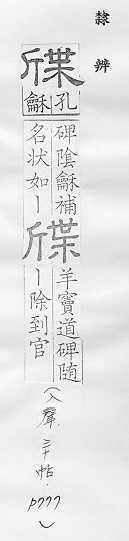 隸辨
牒
孔
龢
碑陰龢補
名状如丨
牒
羊竇道碑随
丨除到官
(入聲三十帖. P777)